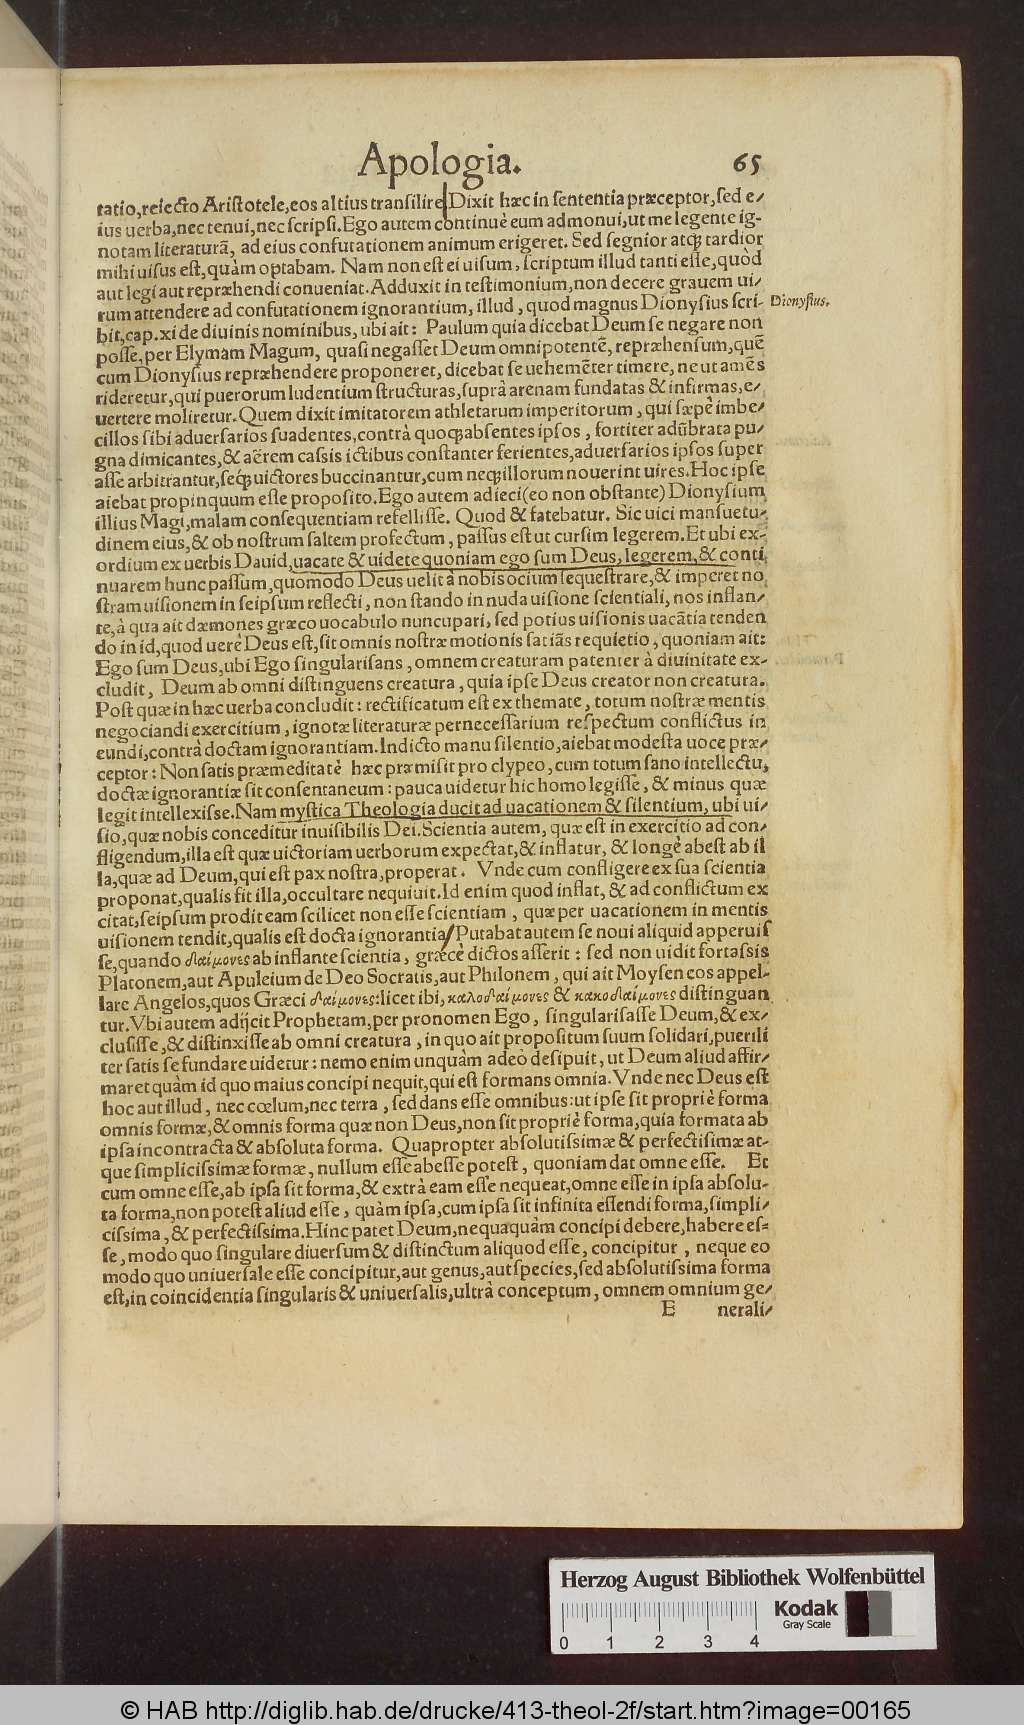 Apologia. 65
tatio,reiecto Aristotele,eos altius transilire. Dixit hæc in sententia præceptor, sed e/
ius uerba,nec tenui,nec scripsi. Ego autem continuè eum admonui, ut me legente ig-
notam literaturã, ad eius confutationem animum erigeret. Sed segnior atq; tardior
mihi uisus est, quàm optabam. Nam non est ei uisum, scriptum illud tanti esse, quòd
aut legi aut repræhendi conueniat. Adduxit in testimonium, non decere grauem ui/
rum attendere ad confutationem ignorantium, illud, quod magnus Dionysius scri-
Dionysius.
bit, cap. xi de diuinis nominibus, ubi ait: Paulum quia dicebat Deum se negare non
posse, per Elymam Magum, quasi negasset Deum omnipotentẽ, repræhensum, quẽ
cum Dionysius repræhendere proponeret, dicebat se uehemẽter timere, ne ut amẽs
rideretur, qui puerorum ludentium structuras, suprà arenam fundatas & infirmas, e/
uertere moliretur. Quem dixit imitatorem athletarum imperitorum, qui sæpè imbe/
cillos sibi aduersarios suadentes, contrà quoq; absentes ipsos, fortiter adũbrata pu/
gna dimicantes, & aërem cassis ictibus constanter ferientes, aduersarios ipsos super
asse arbitrantur, seq; uictores buccinantur, cum neq; illorum nouerint uires. Hoc ipse
aiebat propinquum esse proposito. Ego autem adieci (eo non obstante) Dionysium
illius Magi, malam consequentiam refellisse. Quod & fatebatur. Sic uici mansuetu/
dinem eius, & ob nostrum saltem profectum, passus est ut cursim legerem. Et ubi ex-
ordium ex uerbis Dauid, uacate & uidete quoniam ego sum Deus, legerem, & conti
nuarem hunc passum, quomodo Deus uelit à nobis ocium sequestrare, & imperet no
stram uisionem in seipsum reflecti, non stando in nuda uisione scientiali, nos inflan/
te, à qua ait dæmones græco uocabulo nuncupari, sed potius uisionis uacãtia tenden
do in id, quod uerè Deus est, sit omnis nostræ motionis satiãs requietio, quoniam ait:
Ego sum Deus, ubi Ego singularisans, omnem creaturam patenter à diuinitate ex-
cludit, Deum ab omni distinguens creatura, quia ipse Deus creator non creatura.
Post quæ in hæc uerba concludit: rectificatum est ex themate, totum nostræ mentis
negociandi exercitium, ignotæ literaturæ pernecessarium respectum conflictus in
eundi, contrà doctam ignorantiam. Indicto manu silentio, aiebat modesta uoce præ/
ceptor: Non satis præmeditatè hæc præmisit pro clypeo, cum totum sano intellectu,
doctæ ignorantiæ sit consentaneum: pauca uidetur hic homo legisse, & minus quæ
legit intellexisse. Nam mystica Theologia ducit ad uacationem & silentium, ubi ui/
sio, quæ nobis conceditur inuisibilis Dei. Scientia autem, quæ est in exercitio ad con/
fligendum, illa est quæ uictoriam uerborum expectat, & inflatur, & longè abest ab il
la, quæ ad Deum, qui est pax nostra, properat. Vnde cum configere ex sua scientia
proponat, qualis sit illa, occultare nequiuit. Id enim quod inflat, & ad conflictum ex
citat, seipsum prodit eam scilicet non esse scientiam, quæ per uacationem in mentis
uisionem tendit, qualis est docta ignorantia/ Putabat autem se noui aliquid apperuis
se, quando δαίμονες ab inflante scientia, græcè dictos asserit: sed non uidit fortassis
Platonem, aut Apuleium de Deo Socratis, aut Philonem, qui ait Moysen eos appel-
lare Angelos, quos Græci δαίμονες: licet ibi, καλοδαίμονες & κακοδαίμονες distinguan
tur. Vbi autem adijcit Prophetam, per pronomen Ego, singularisasse Deum, & ex/
clusisse, & distinxisse ab omni creatura, in quo ait propositum suum solidari, puerili
ter satis se fundare uidetur: nemo enim unquàm adeò desipuit, ut Deum aliud affir/
maret quàm id quo maius concipi nequit, qui est formans omnia. Vnde nec Deus est
hoc aut illud, nec cœlum, nec terra, sed dans esse omnibus: ut ipse sit propriè forma
omnis formæ, & omnis forma quæ non Deus, non sit propriè forma, quia formata ab
ipsa incontracta & absoluta forma. Quapropter absolutissimæ & perfectissimæ at-
que simplicissimæ formæ, nullum esse abesse potest, quoniam dat omne esse. Et
cum omne esse, ab ipsa sit forma, & extrà eam esse nequeat, omne esse in ipsa absolu-
ta forma, non potest aliud esse, quàm ipsa, cum ipsa sit infinita essendi forma, simpli/
cissima, & perfectissima. Hinc patet Deum, nequaquàm concipi debere, habere es=
se, modo quo singulare diuersum & distinctum aliquod esse, concipitur, neque eo
modo quo uniuersale esse concipitur, aut genus, aut species, sed absolutissima forma
est, in coincidentia singularis & uniuersalis, ultrà conceptum, omnem omnium ge/
E nerali/
Herzog August Bibliothek Wolfenbüttel
Kodak
Gray Scale
0 1 2 3 4
© HAB http://diglib.hab.de/drucke/413-theol-2f/start.htm?image=00165